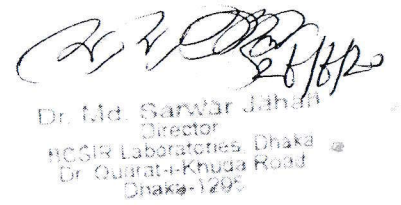 Dr. Md. Sarwar Jahan
Director
BCSIR Laboratories, Dhaka
Dr. Qudrat-i-Khuda Road
Dhaka-1205